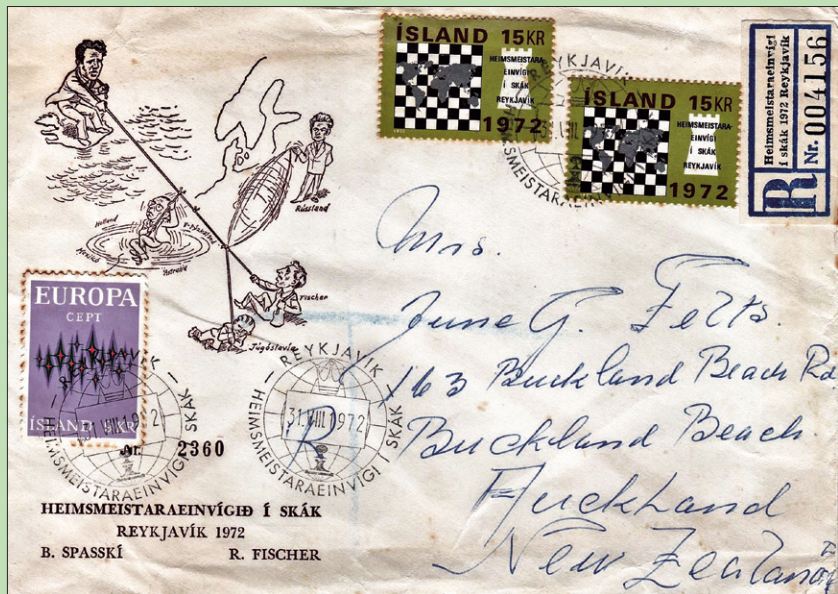 ÍSLAND 15 KR
HEIMSMEISTARA-
EINVÍGI
Í SKÁK
REYKJAVÍK
1972
ÍSLAND 15 KR
HEIMSMEISTARA-
EINVÍGI
Í SKÁK
REYKJAVÍK
1972
REYKJAVÍK
HEIMSMEISTARAEINVÍGI
R
Heimsmeistaraeinvígi
í skák 1972 Reykjavík
Nr. 004156
Holland
Mexico
Rússland
Fischer
Júgóslavía
EUROPA
CEPT
ÍSLAND 9 KR
REYKJAVÍK
HEIMSMEISTARAEINVÍGI Í SKÁK
REYKJAVÍK
31.VIII.1972
HEIMSMEISTARAEINVÍGI Í SKÁK
R
Nr. 2360
HEIMSMEISTARAEINVÍGIÐ Í SKÁK
REYKJAVÍK 1972
B. SPASSKÍ R. FISCHER
Mrs.
June G. Felts.
163 Buckland Beach Rd
Buckland Beach.
Auckland
New Zealand